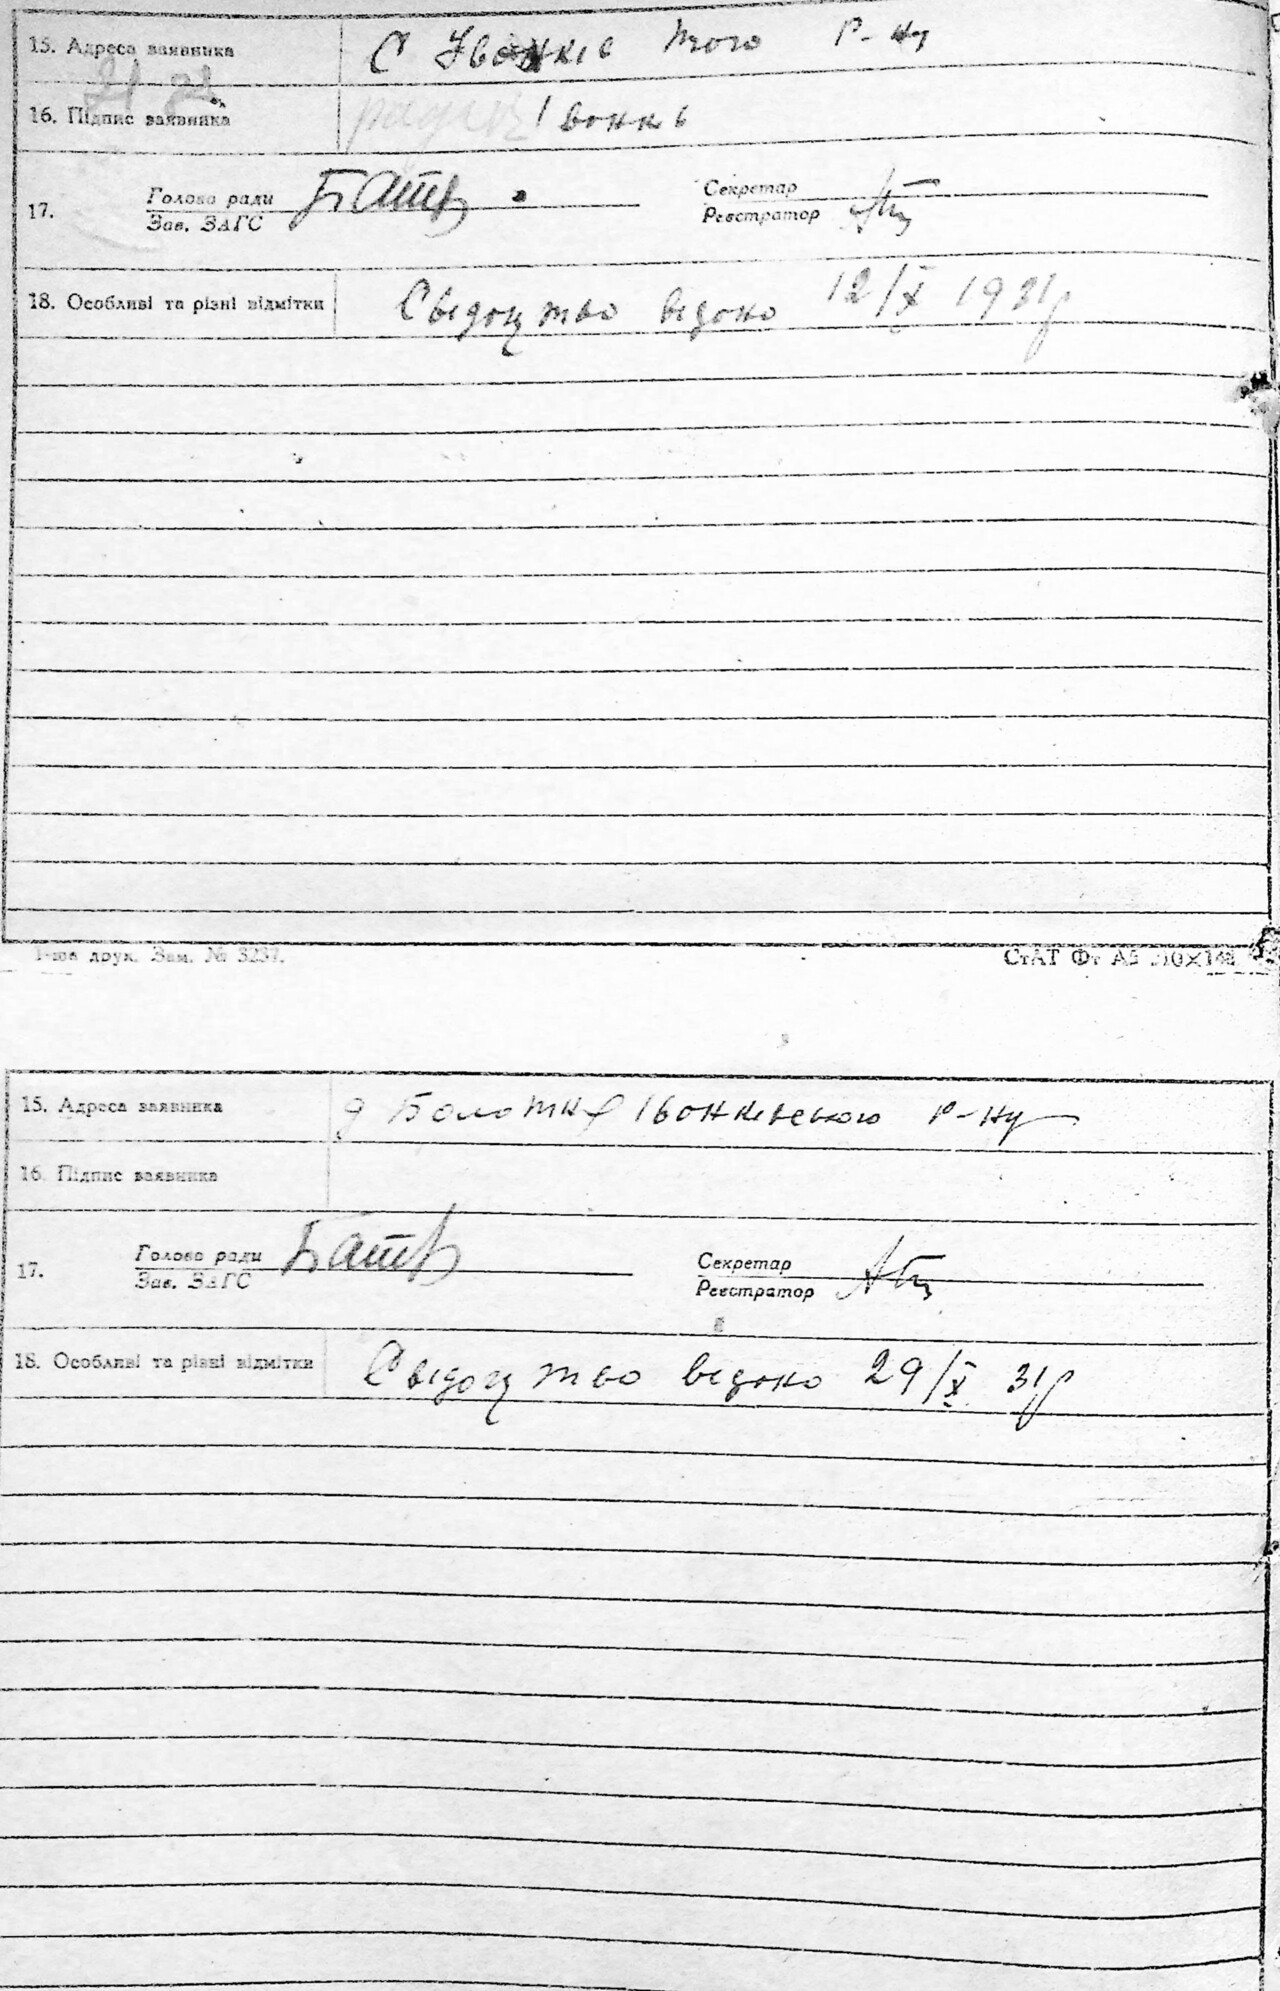 15. Адреса заявника С Івонків того Р-ну
16. Підпис заявника
17. Голова ради Секретар
Зав. ЗАГС Реєстратор
18. Особливі та різні відмітки Свідоцтво відоно 12/X 1931р
друк. Зам. № 3237. СтАТ Фт А5 210×148
15. Адреса заявника д Болотня Івонківського Р-ну
16. Підпис заявника
17. Голова ради Секретар
Зав. ЗАГС Реєстратор
18. Особливі та різні відмітки Свідоцтво відоно 29/X 31р